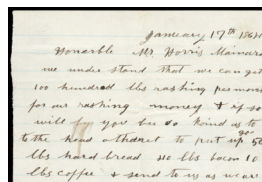 January 17th 1864
Honorble Mr Morris
we under stand that we can get
100 hundred lbs rashing per month
for our rashing money & if so
will by you be so kind as to
to the head otheret to put up 50
lbs hard bread 20 lbs bacon 10
lbs coffee & send to us as we are